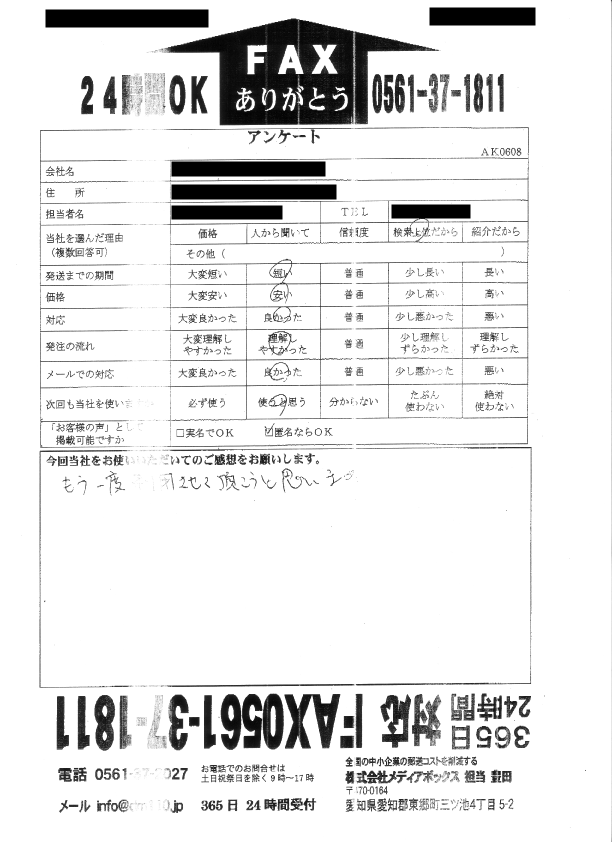 FAX
ありがとう
24時間OK
0561-37-1811
アンケート
AK0608
会社名
住　所
担当者名 TEL
当社を選んだ理由 （複数回答可） 価格 人から聞いて 信頼度 検索上位だから 紹介だから
その他（ ）
発送までの期間 大変短い 短い 普通 少し長い 長い
価格 大変安い 安い 普通 少し高い 高い
対応 大変良かった 良かった 普通 少し悪かった 悪い
発注の流れ 大変理解しやすかった 理解しやすかった 普通 少し理解しずらかった 理解しずらかった
メールでの対応 大変良かった 良かった 普通 少し悪かった 悪い
次回も当社を使いま 必ず使う 使うと思う 分からない たぶん使わない 絶対使わない
「お客様の声」として掲載可能ですか □実名でOK ☑匿名ならOK
今回当社をお使いいただいてのご感想をお願いします。
もう一度 させて頂こうと思います
365日 24時間 対応 FAX0561-37-1811
電話 0561-37- 027
お電話でのお問合せは
土日祝祭日を除く9時〜17時
メール info@ .jp 365日 24時間受付
全国の中小企業の郵送コストを削減する
株式会社メディアボックス 担当 豊田
〒470-0164
愛知県愛知郡東郷町三ツ池4丁目5-2